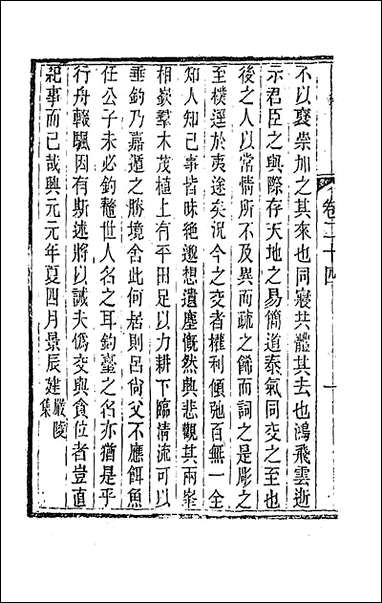 卷二十四
一
不以袞崇加之其來也同寢共體其去也鴻飛雲逝
示君臣之與際存天地之易簡道泰氣同交之至也
後之人以常情所不及異而疏之飾而詞之是彫之
至樸逕於夷途矣況今之交者權利傾弛百無一全
知人知己事皆昧絶邈想遺塵慨然與悲觀其兩峯
相嶔羣木茂植上有平田足以力耕下臨清流可以
垂釣乃嘉遁之勝境舍此何居則呂尙父不應餌魚
任公子未必釣鼇世人名之耳釣臺之名亦猶是乎
行舟輟颿因有斯述將以誡夫僞交與貪位者豈直
紀事而已哉興元元年夏四月景辰建嚴陵集